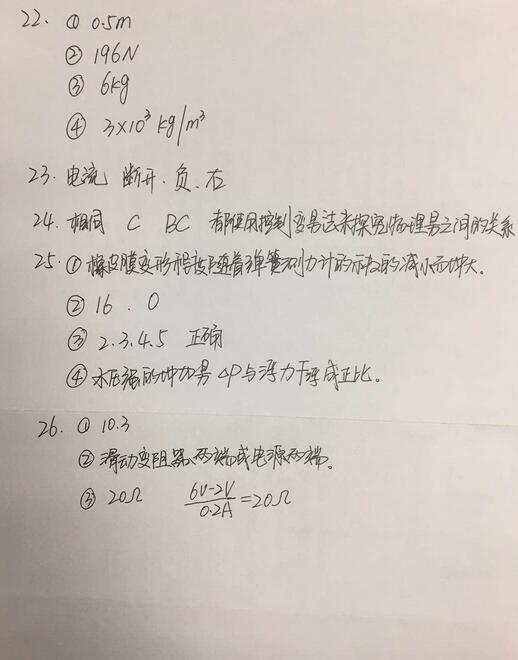 22. ① 0.5m
② 196N
③ 6kg
④ 3×10³ kg/m³
23. 电流 断开. 负. 右
24. 相同 C BC 都使用控制变量法来探究物理量之间的关系
25. ① 橡皮膜变形程度随着弹簧测力计的示数的减小而增大。
② 16 . 0
③ 2.3.4.5 正确
④ 水压强的增加量 ΔP与浮力F浮成正比。
26. ① 10.3
② 滑动变阻器两端或电源两端。
③ 20Ω (6V-2V)/0.2A = 20Ω